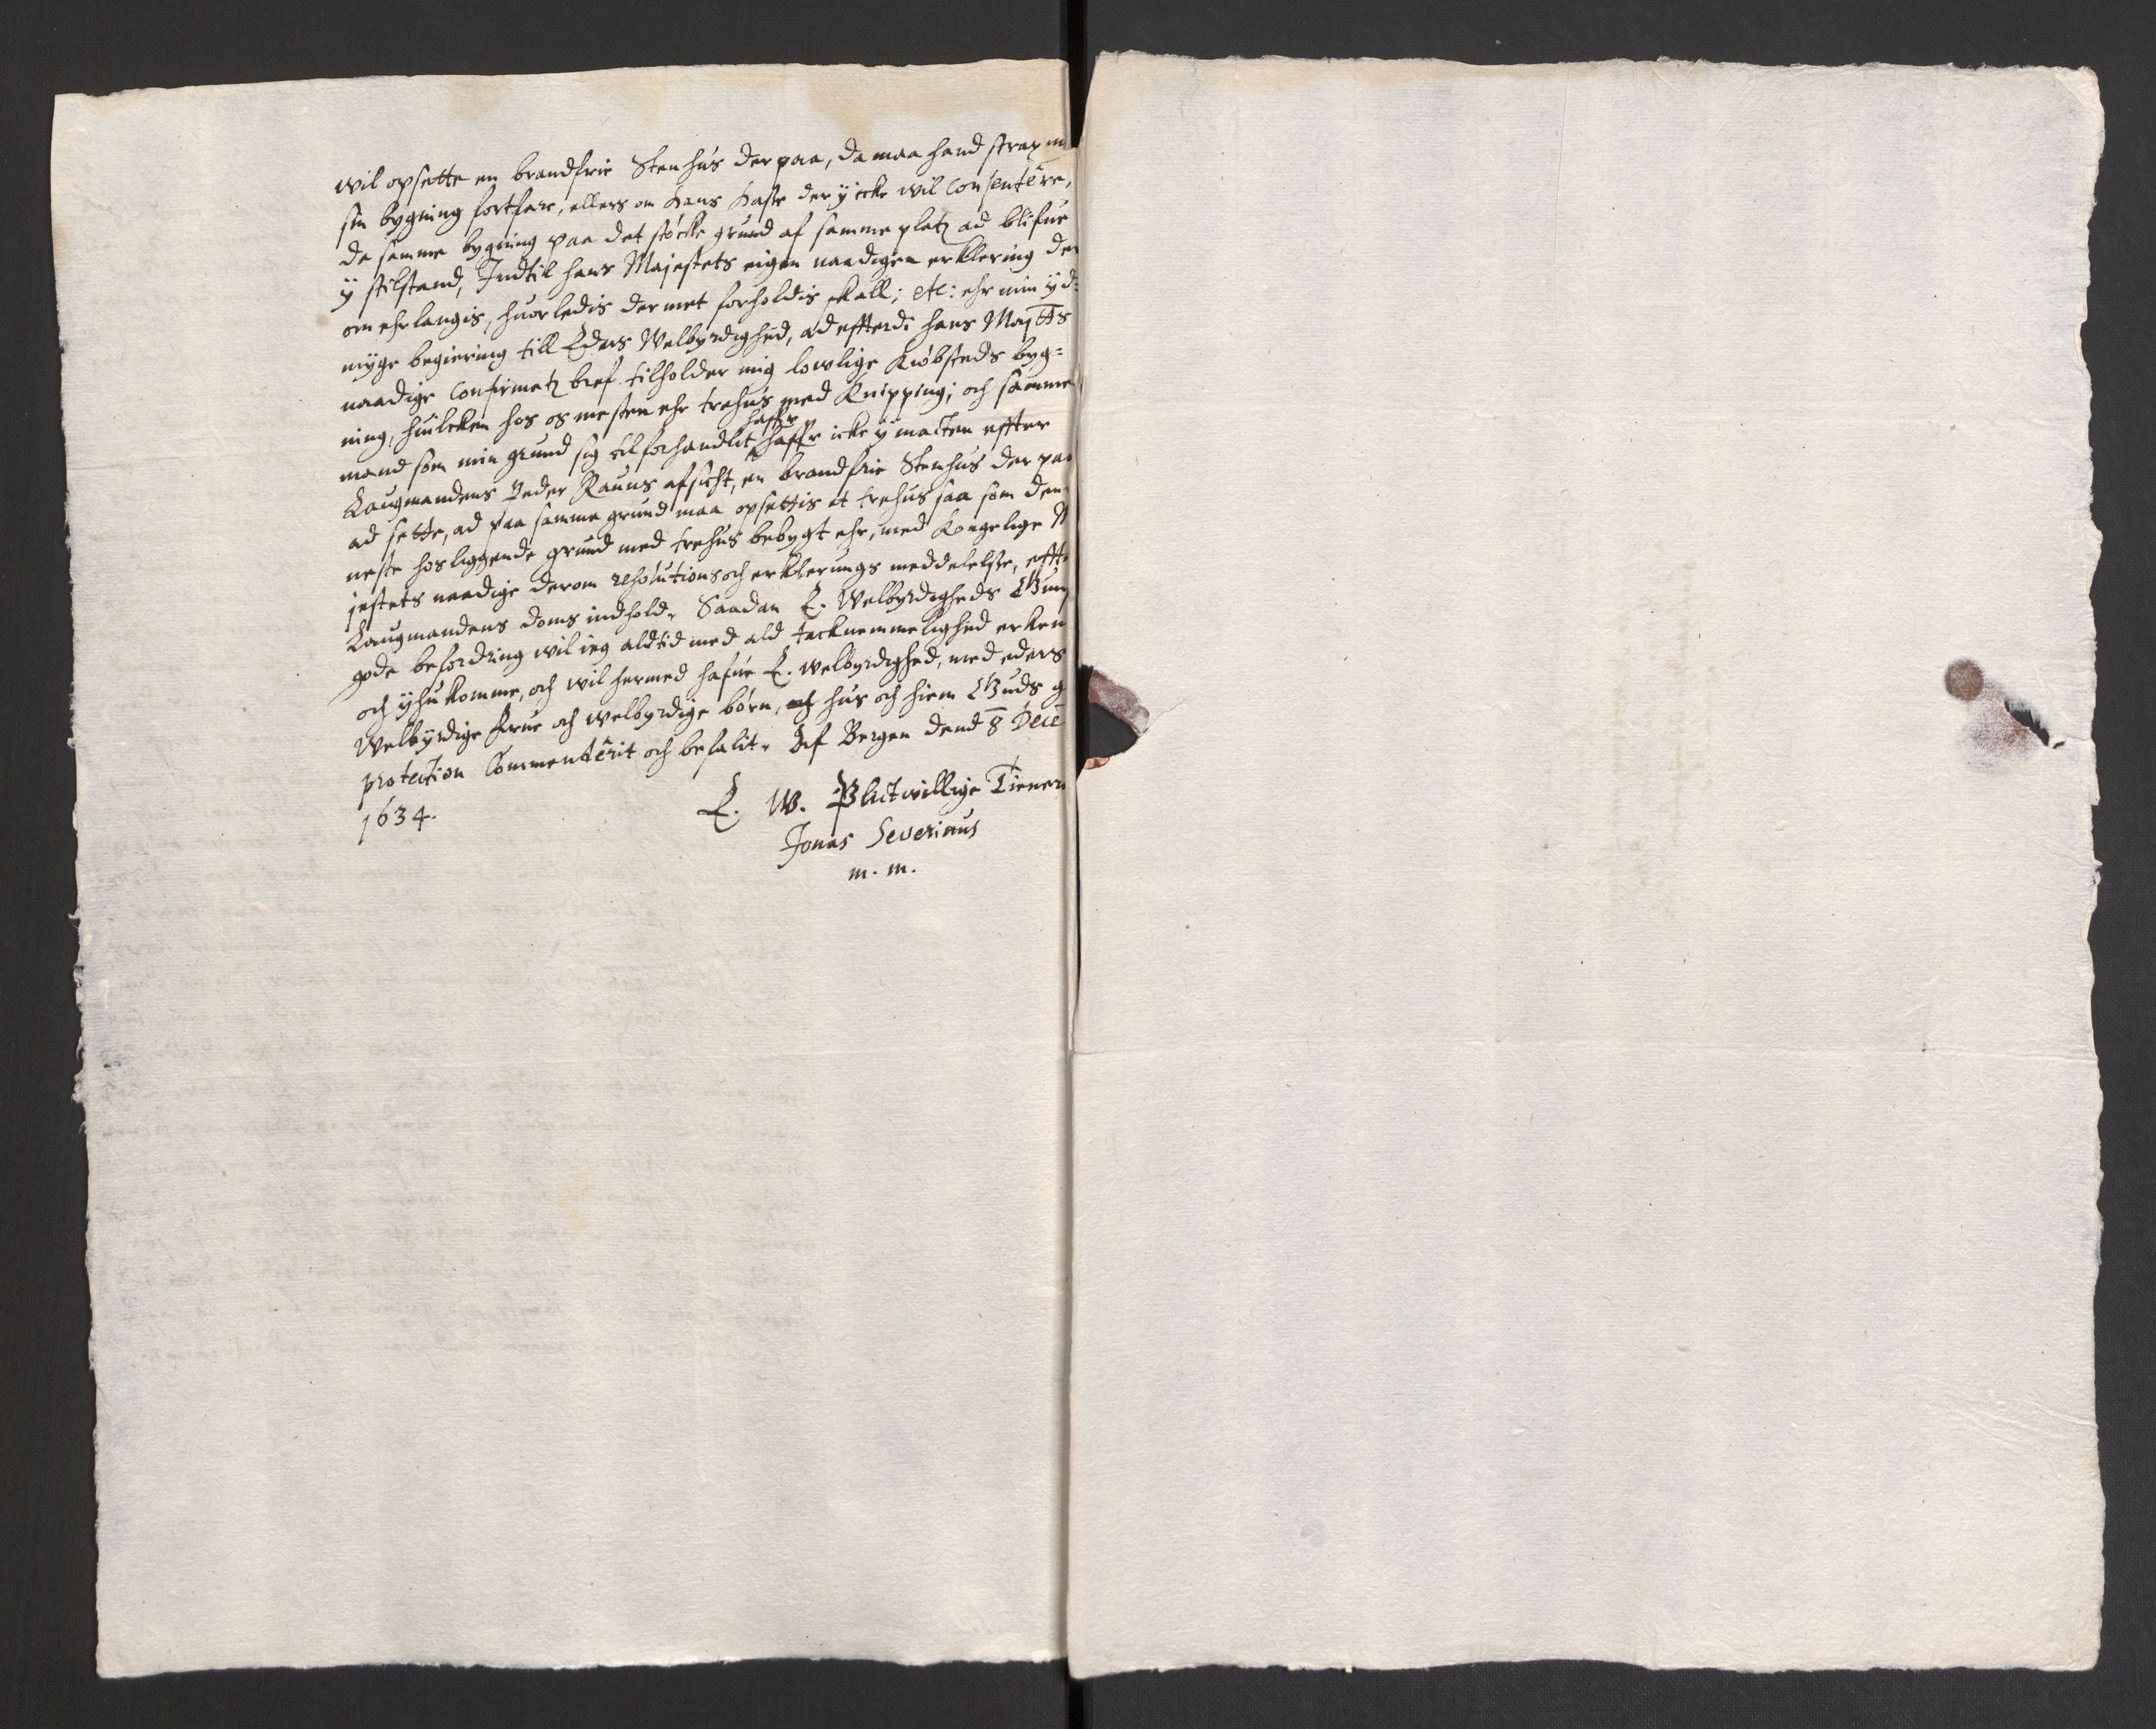 wil opsette en brandfrie Stenhus der paa, da maa hand strax m
sin bygning fortfare, ellers om Hans Haste der ÿ icke wil Consentere,
da samme bygning paa det støcke grund af samme platz ad blifue
ÿ stilstand, Indtil hans Majestets eigen naadigen erklering der
om ehrlangis, huorledis der met forholdis skall; etc: ehr min ÿd=
mÿge begiering till Eders Welbyrdighed, ad efftterdi hans Maytts
naadige Confirmatz bref tilholder mig lowlige Kiøbsteds byg=
ning, huilcken hos os mesten ehr trehus med Knipping; och samme
mand som min grund sig tilforhandlit haffr icke ÿ macten effter
haffr
Laugmandens Peder Rauns afsicht, en brandfrie Stenhus der paa
ad sette, ad paa samme grund maa opsettis it trehus saa som den
neste hosliggende grund med trehus bebygt ehr, med Kongelige M
jestets naadige derom resolutions och erklerings meddelelse, effte
Laugmandens doms indhold. Saadan E. Welbyrdigheds Gun
gode befordring wil ieg altid med ald tacknemmelighed erken
och ÿhukomme, och wil hermed hafue E. welbyrdighed, med eders
Welbÿrdige Frue och welbyrdige børn, hus och hiem Guds g
protection Commenderit och befalit. Af Bergen dend 8 Dece
1634.
E. W. Plictwillige Tienere
Jonas Severinus
m. m.